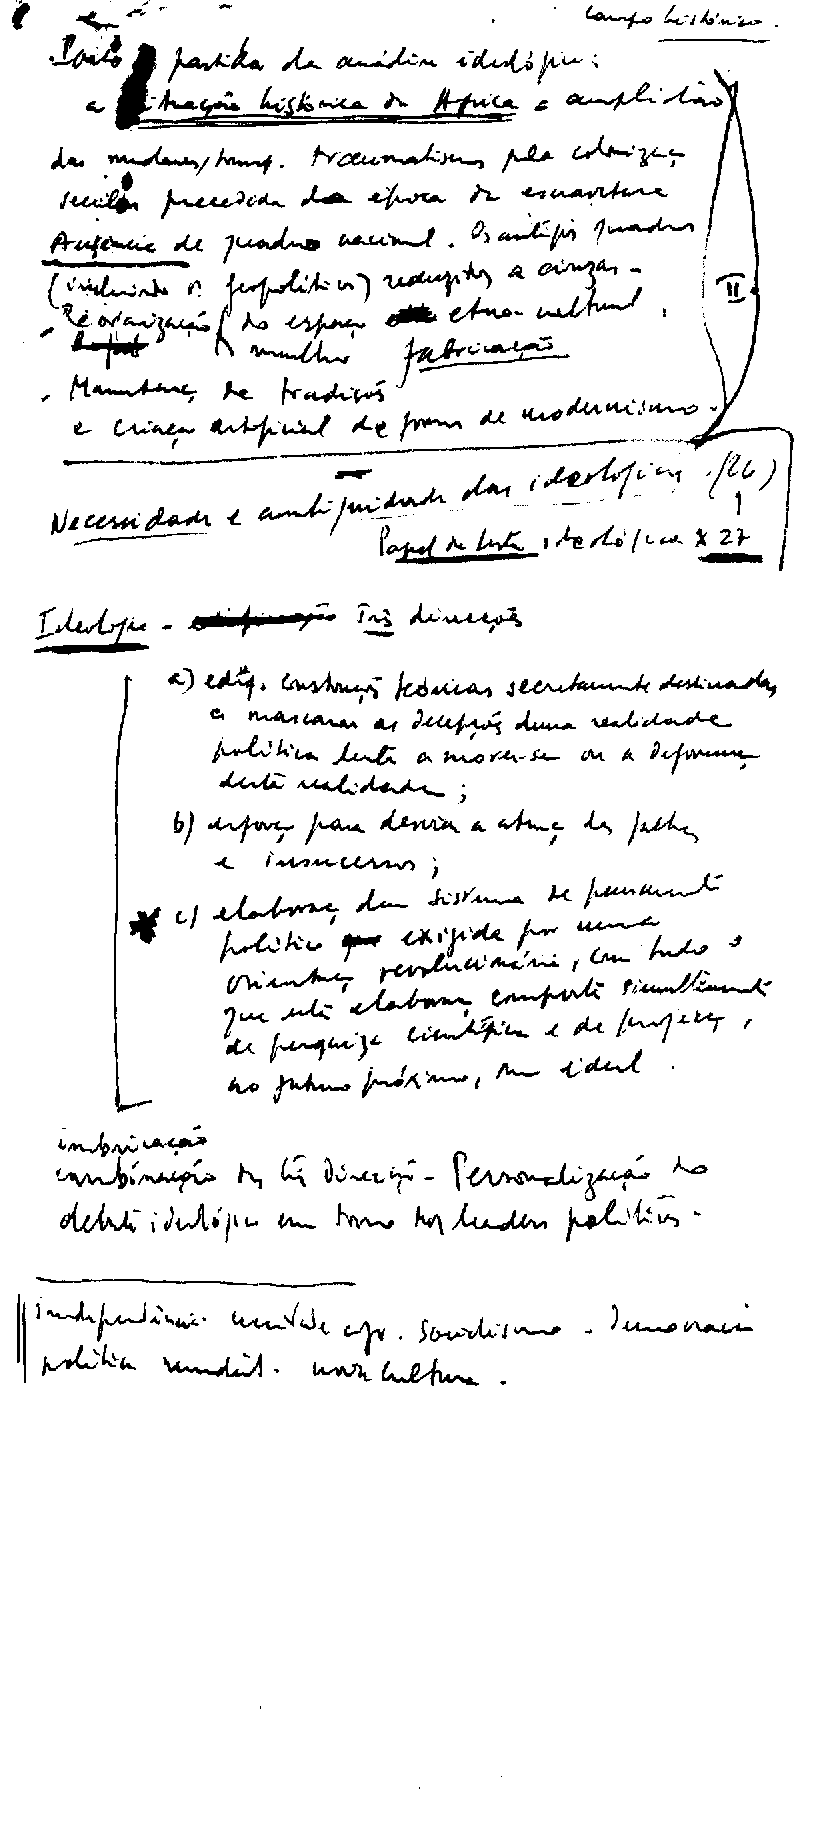 campo histórico.
Ponto partida da análise ideológica:
a situação histórica da Africa e amplidão
das mudanças/transf. traumatismos pela colonizaç
secular precedida da época da escravatura
Ausência de quadro nacional. Os antigos quadros
(incluindo os geopolíticos) reduzidos a cinzas -
. Reorganização do espaço etno-cultural,
fabricação
. Manutenç de tradições
e criaçao artificial de formas de modernismo.
II
Necessidade e ambiguidade das ideologias. (26)
Papel de luta ideológica x 27
Ideologia - Três direcções
a) edif. construções teóricas secretamente destinadas
a mascarar as decepções duma realidade
política lenta a mover-se ou a deformaç
desta realidade;
b) esforço para desviar a atenç das falhas
e insucessos;
c) elaboraç dum sistema de pensamento
político exigida por uma
orientaç revolucionária, com tudo o
que esta elaboraç comporta simultaneamente
de pesquiza científica e de projecç,
no futuro próximo, dum ideal.
imbricação
combinação das três direcçõ - Personalização do
debate ideológico em torno dos leaders políticos -
independência. unidade afr. socialismo - Democracia
política mundial. nova cultura.